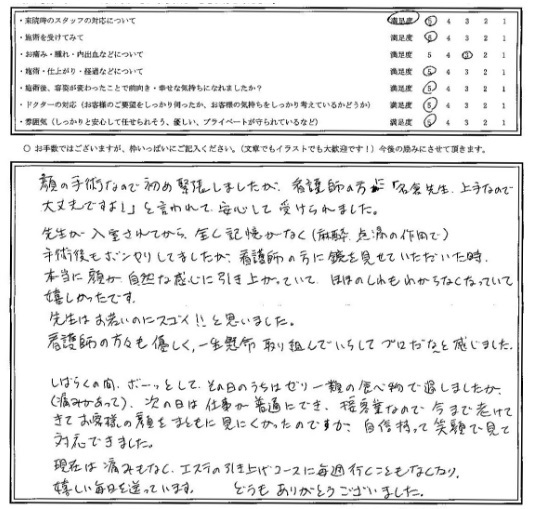 ・来院時のスタッフの対応について 満足度 5 4 3 2 1
・施術を受けてみて 満足度 5 4 3 2 1
・お痛み・腫れ・内出血などについて 満足度 5 4 3 2 1
・施術・仕上がり・経過などについて 満足度 5 4 3 2 1
・施術後、容姿が変わったことで前向き・幸せな気持ちになれましたか? 満足度 5 4 3 2 1
・ドクターの対応(お客様のご要望をしっかり伺ったか、お客様の気持ちをしっかり考えているかどうか) 満足度 5 4 3 2 1
・雰囲気(しっかりと安心して任せられそう、優しい、プライベートが守られているなど) 満足度 5 4 3 2 1
○ お手数ではございますが、枠いっぱいにご記入ください。(文章でもイラストでも大歓迎です!)今後の励みにさせて頂きます。
顔の手術なので初め緊張しましたが、看護師の方に「名倉先生、上手なので
大丈夫ですよ!」と言われて、安心して受けられました。
先生が入室されてから、全く記憶がなく(麻酔、点滴の作用で)
手術後もボンヤリしてましたが、看護師の方に鏡を見せていただいた時、
本当に顔が自然な感じに引き上がっていて、目はのしわもわからなくなっていて
嬉しかったです。
先生はお若いのにスゴイ!!と思いました。
看護師の方々も優しく、一生懸命取り組んでいらしてプロだなと感じました。
しばらくの間、ボーッとして、その日のうちはゼリー類の食べ物で過しましたが、
(痛みがあって)、次の日は仕事が普通にでき、接客業なので今まで老けて
きてお客様の顔をまともに見にくかったのですが、自信持って笑顔で見て
対応できました。
現在は痛みもなく、エステの引き上げコースに毎週行くこともなくなり、
嬉しい毎日を送っています。 どうもありがとうございました。